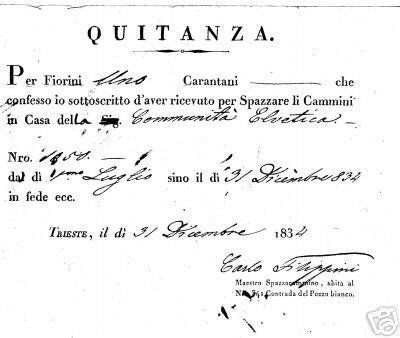 QUITANZA.
Per Fiorini Uno Carantani che
confesso io sottoscritto d'aver ricevuto per Spazzare li Cammini
in Casa della Sig. Communità Elvetica.
Nro. 1050.
dal dì 1mo Luglio sino il dì 31 Dicembre 834
in fede ecc.
TRIESTE, il dì 31 Dicembre 1834
Carlo Filippini
Maestro Spazzacammino, abita al
Contrada del Pozzo bianco.